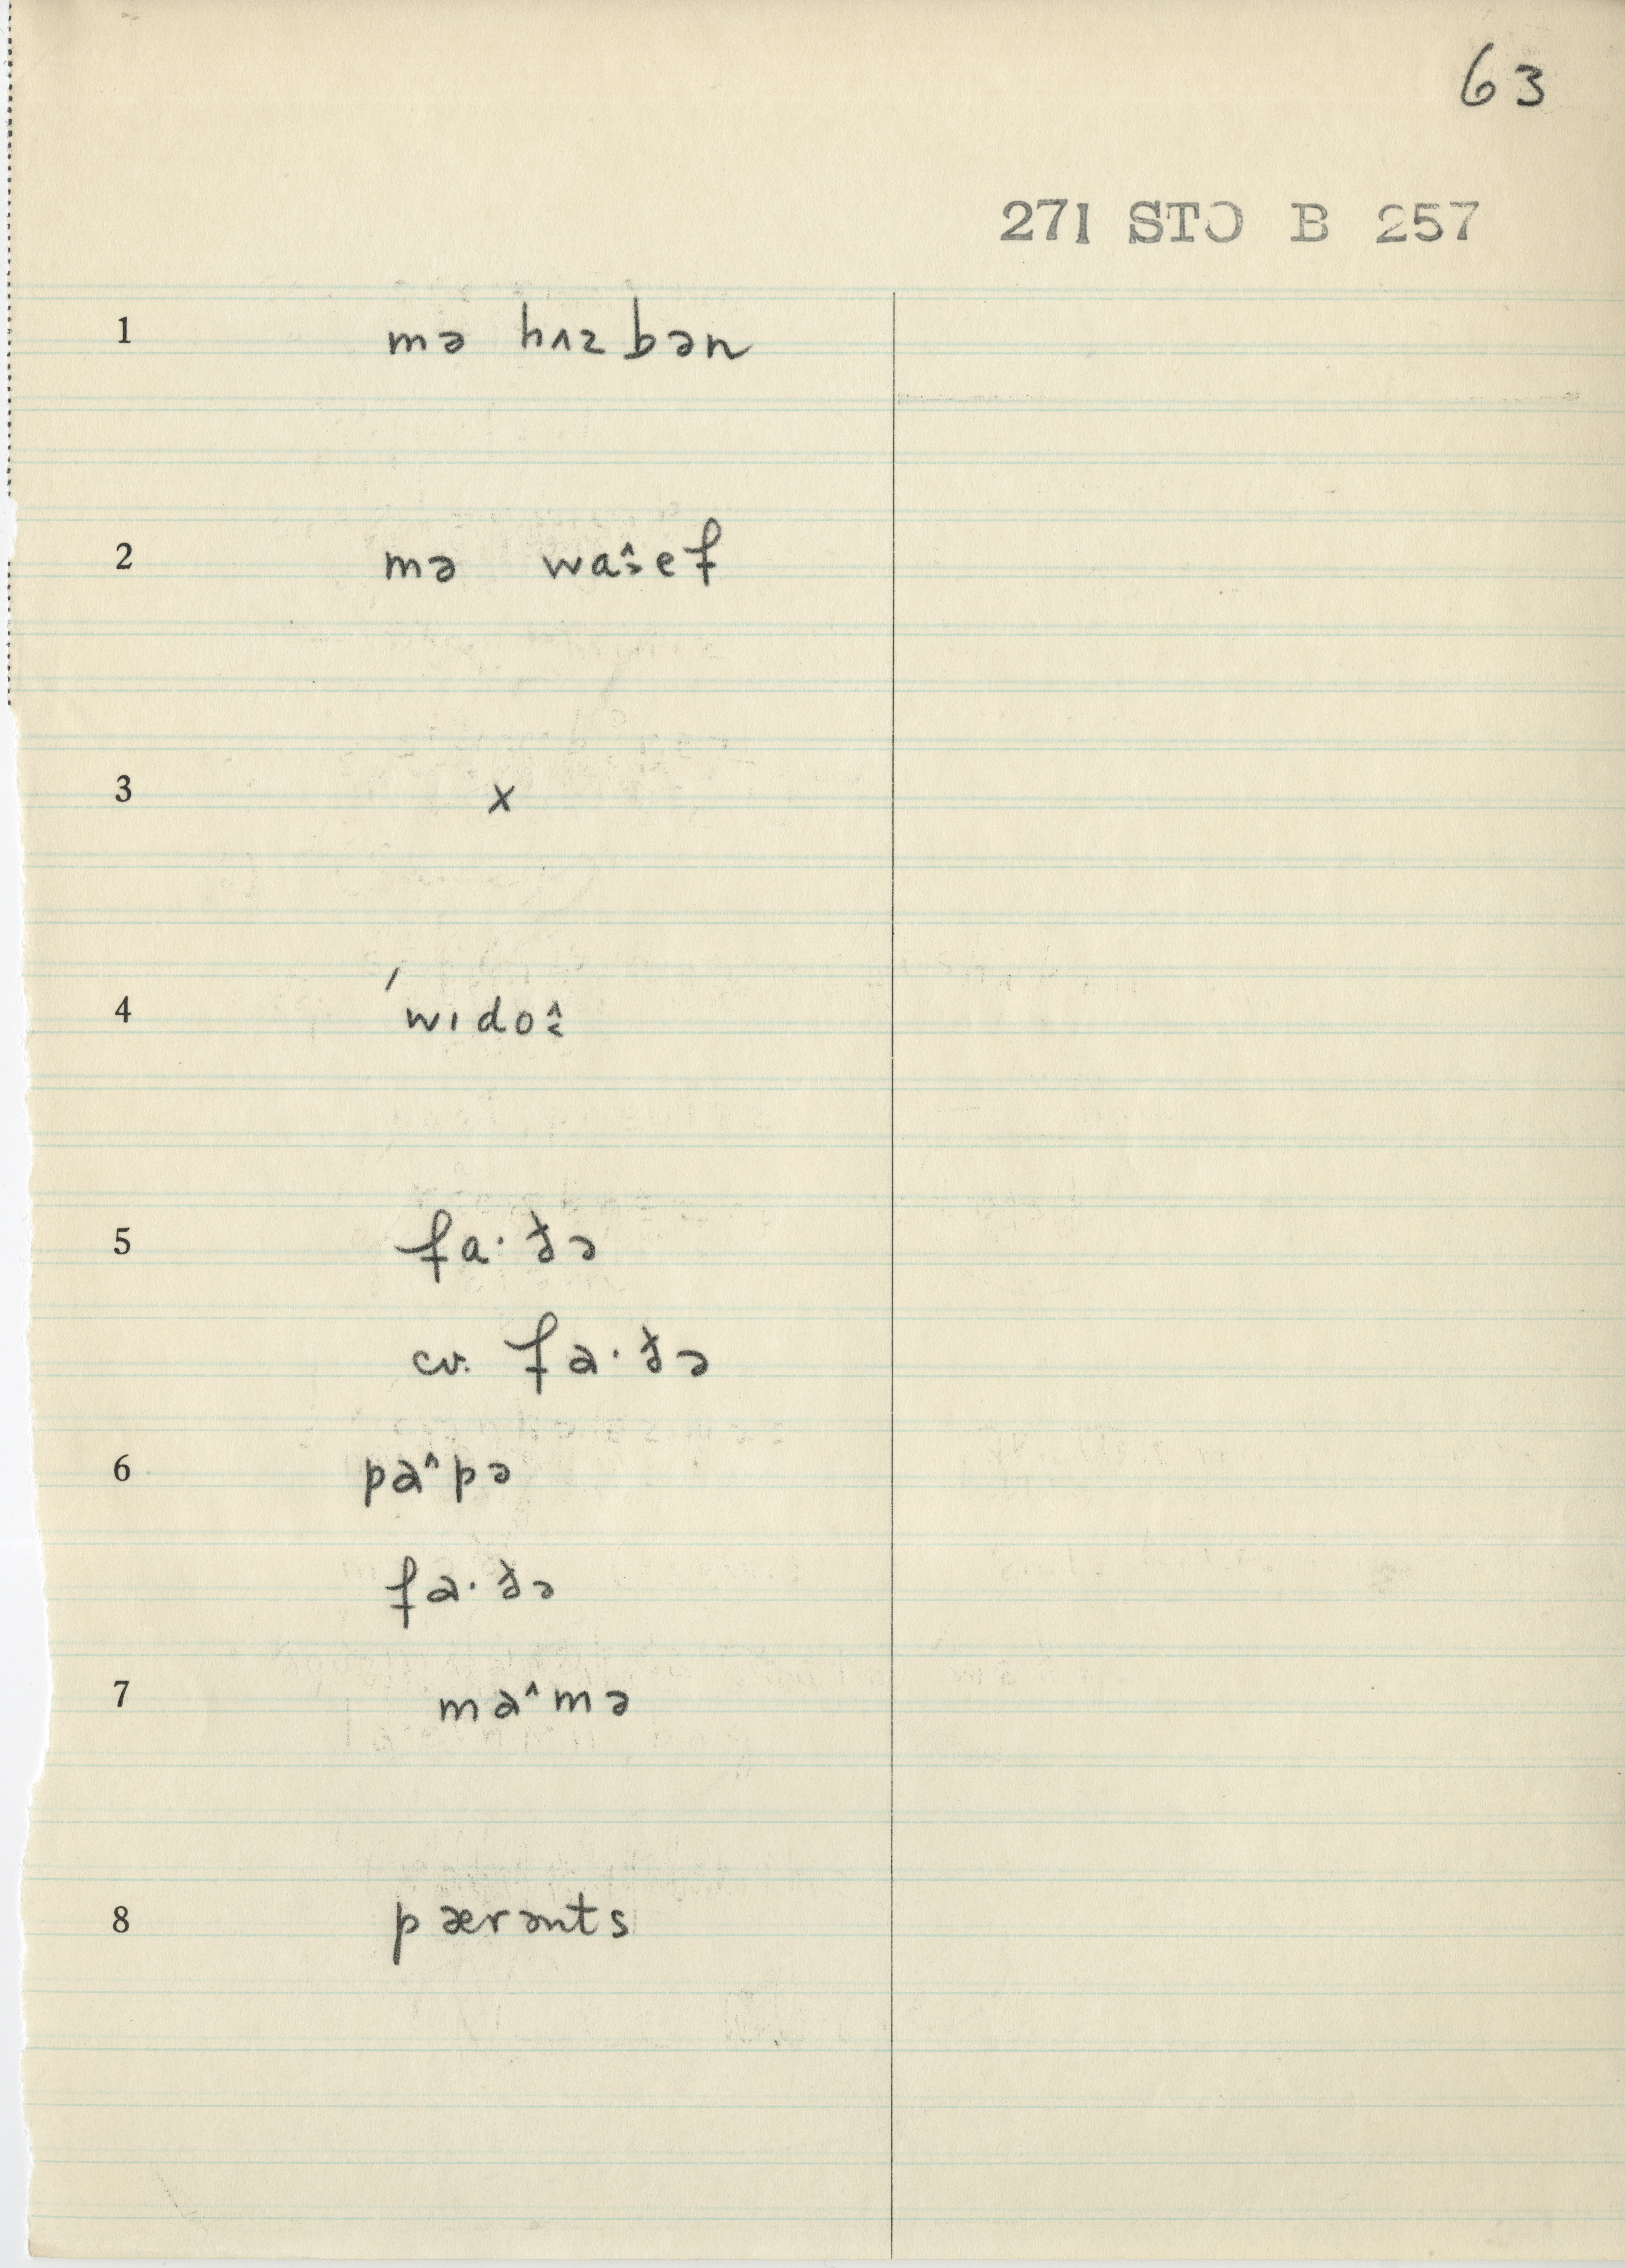 63
271 STO B 257
1 mə hʌzbən
2 mə waˆ꞉ef
3 x
4 ˈwɪdoˆ
5 fa·ðə
cv. fɑ·ðə
6 pɑˆpə
fɑ·ðə
7 mɑˆmə
8 pærənts